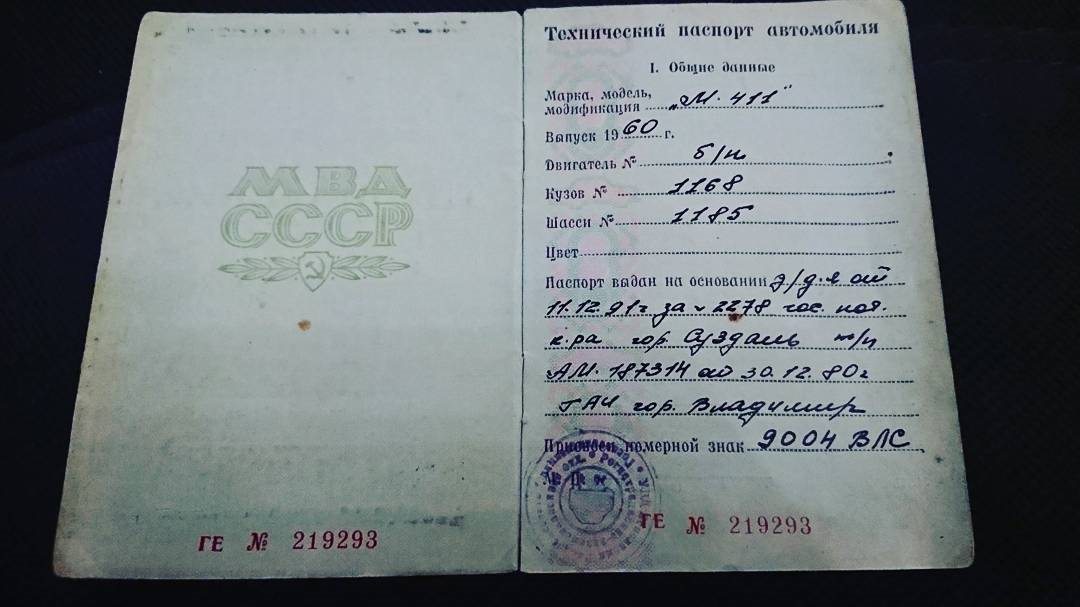 МВД
СССР
ГЕ № 219293
Технический паспорт автомобиля
I. Общие данные
Марка, модель,
модификация „М-411"
Выпуск 1960 г.
Двигатель № б/н
Кузов № 1168
Шасси № 1185
Цвет
Паспорт выдан на основании д/д-я от
11.12.91г за № 2278 гос. нот.
к-ра гор. Суздаль т/п
АМ. 187314 от 30.12.80г
ГАИ гор. Владимир
Присвоен номерной знак 9004 ВЛС
ГЕ № 219293